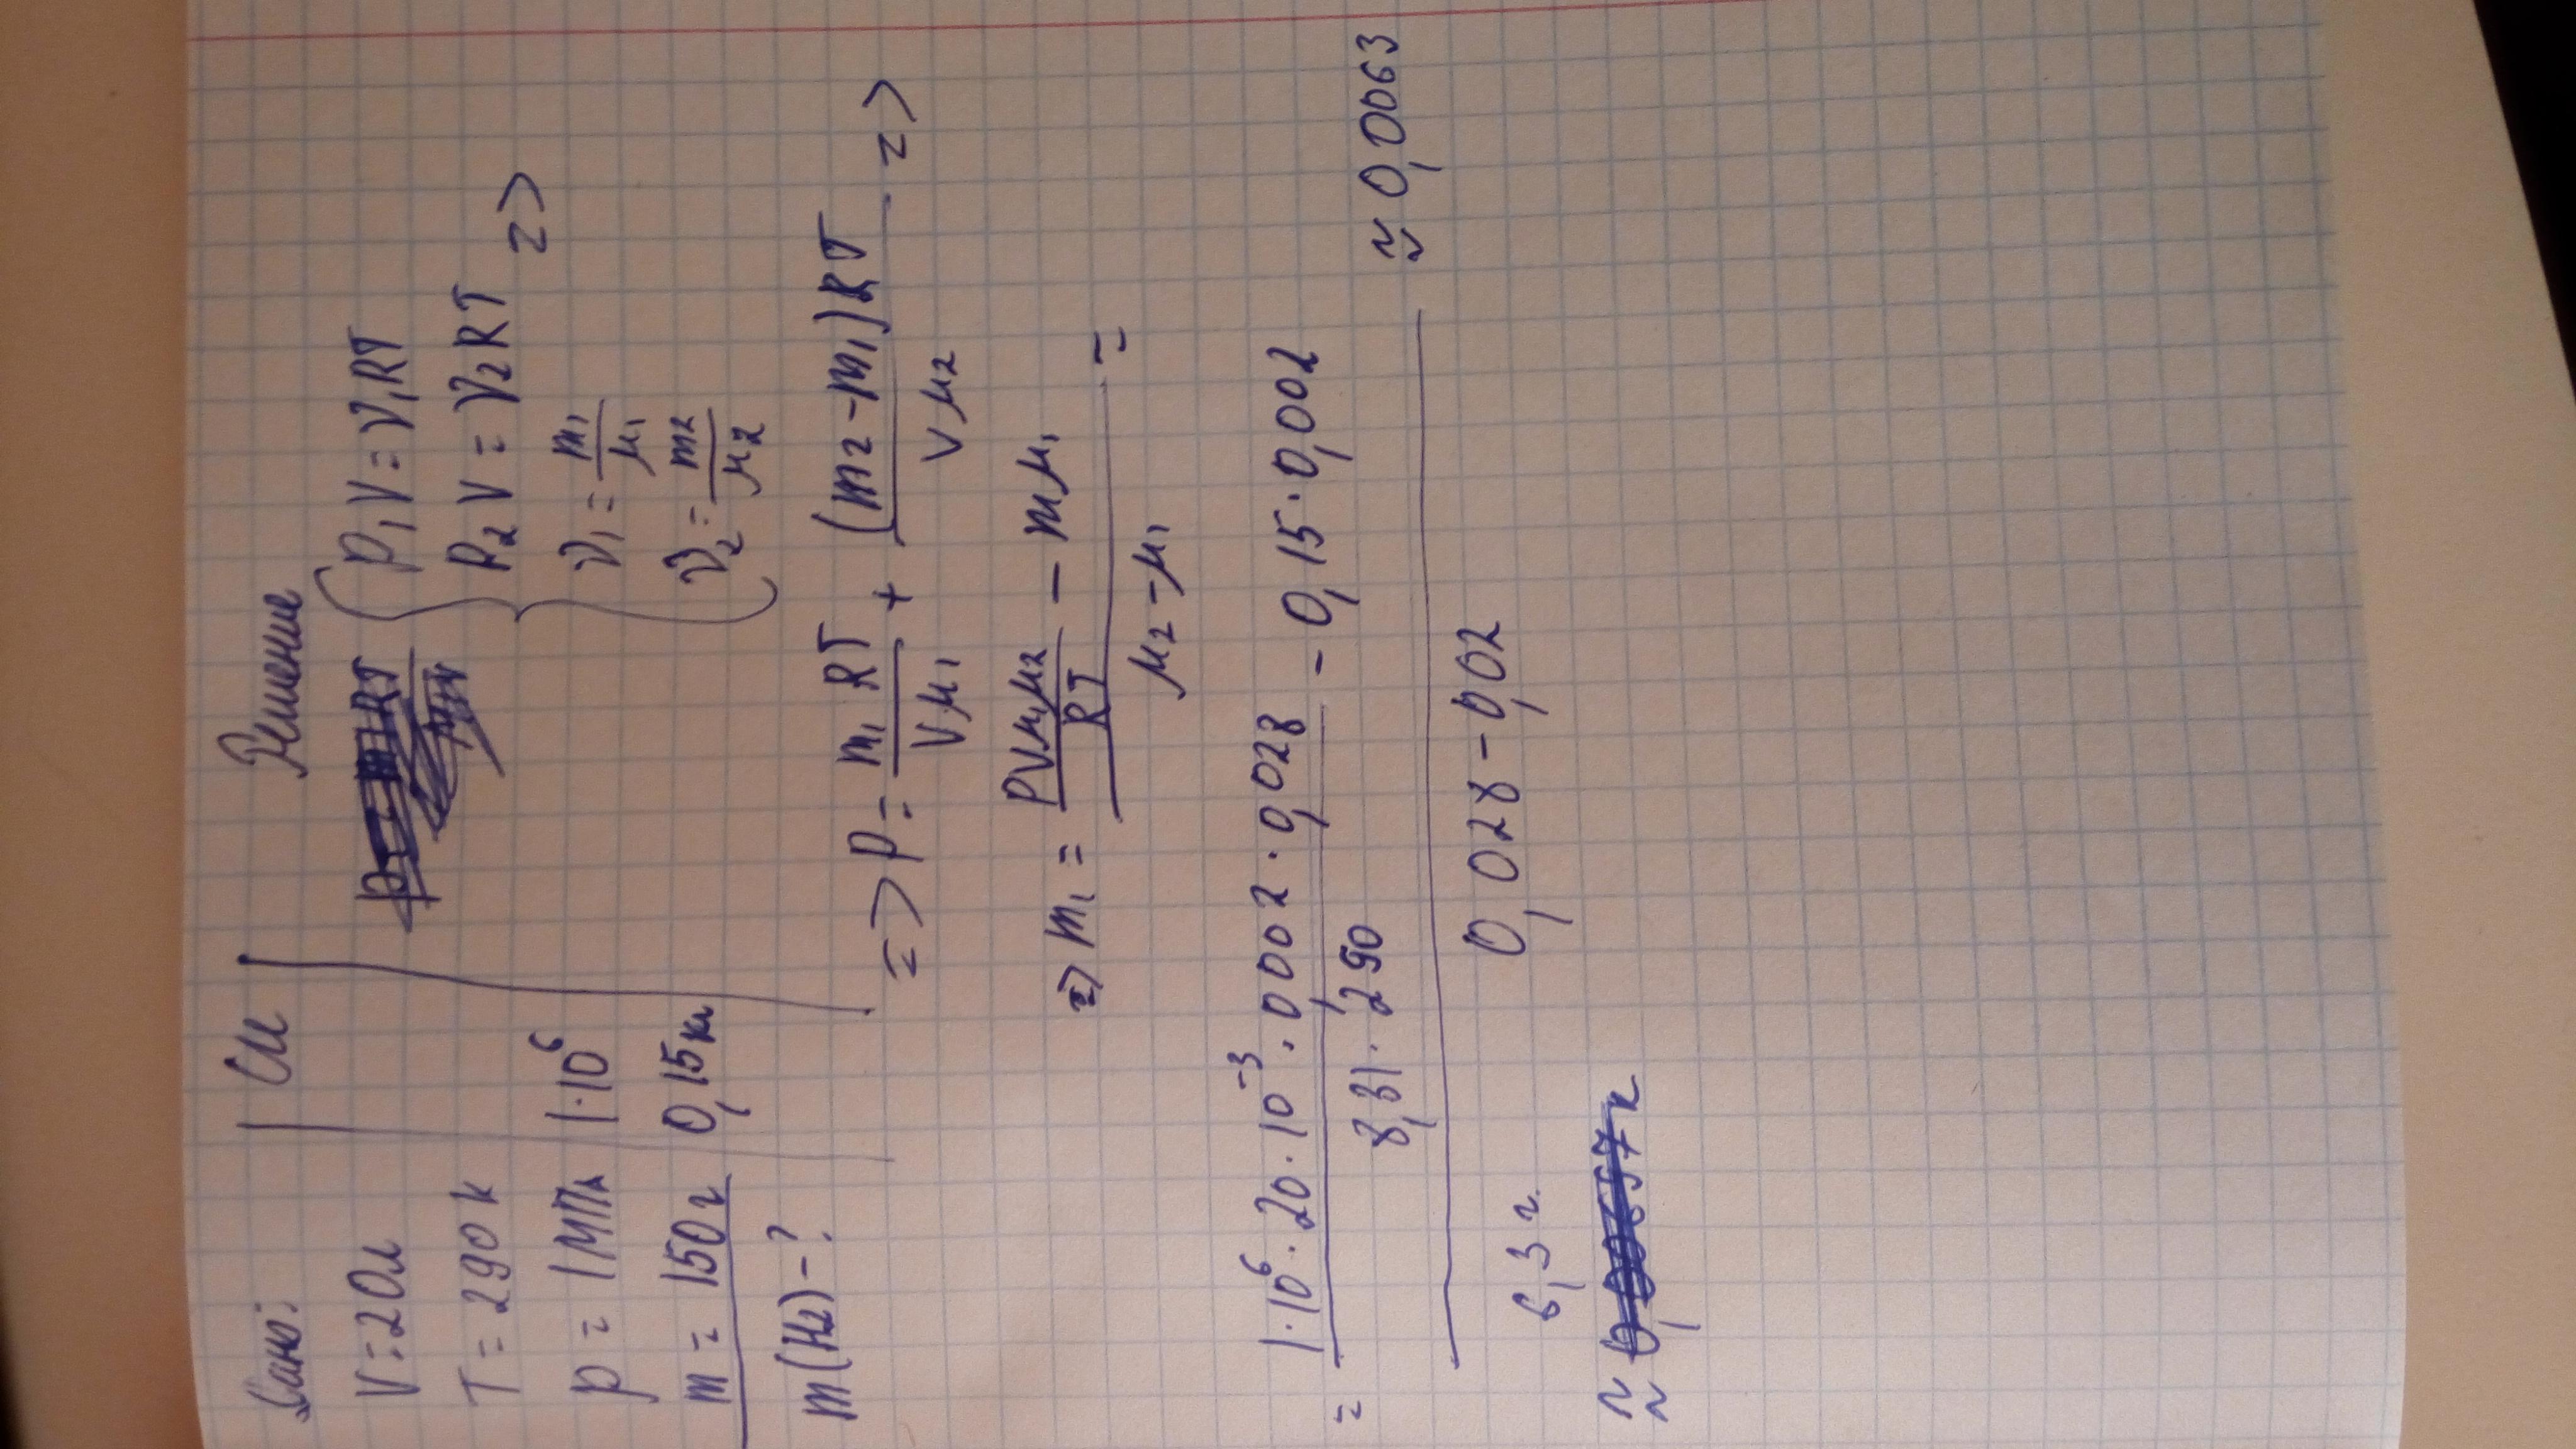 Дано:
V = 20л
T = 290 К
p = 1 МПа
m = 150 г
m(H₂) - ?
СИ
1·10⁶
0,15 кг
Решение
p₁V = ν₁RT
p₂V = ν₂RT =>
ν₁ = m₁/μ₁
ν₂ = m₂/μ₂
=> p = m₁RT/Vμ₁ + (m₂-m₁)RT/Vμ₂ =>
=> m₁ = (PVμ₁μ₂/RT - mμ₁)/(μ₂-μ₁) =
= (1·10⁶·20·10⁻³·0,002·0,028/8,31·290 - 0,15·0,002)/(0,028-0,02) ≈ 0,0063
≈ 6,3 г